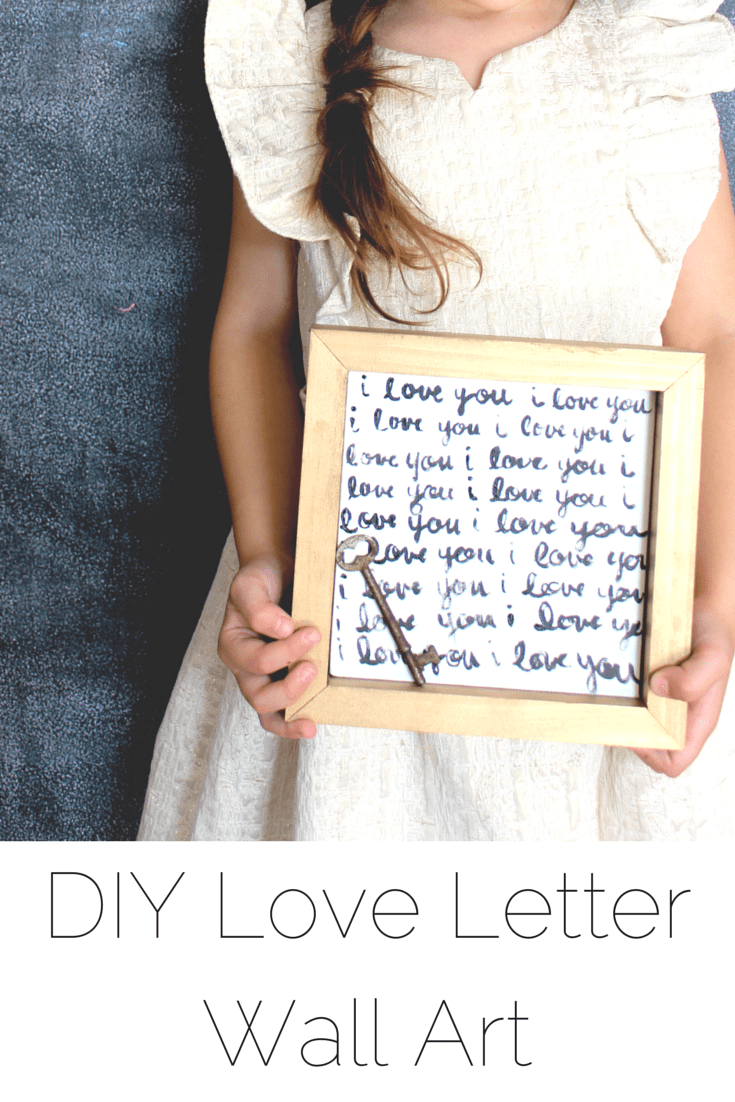 i love you i love you
i love you i love you i
love you i love you i
love you i love you i
love you i love you
i love you i love you
i love you i love you
i love you i love ye
i love you i love you
DIY Love Letter
Wall Art